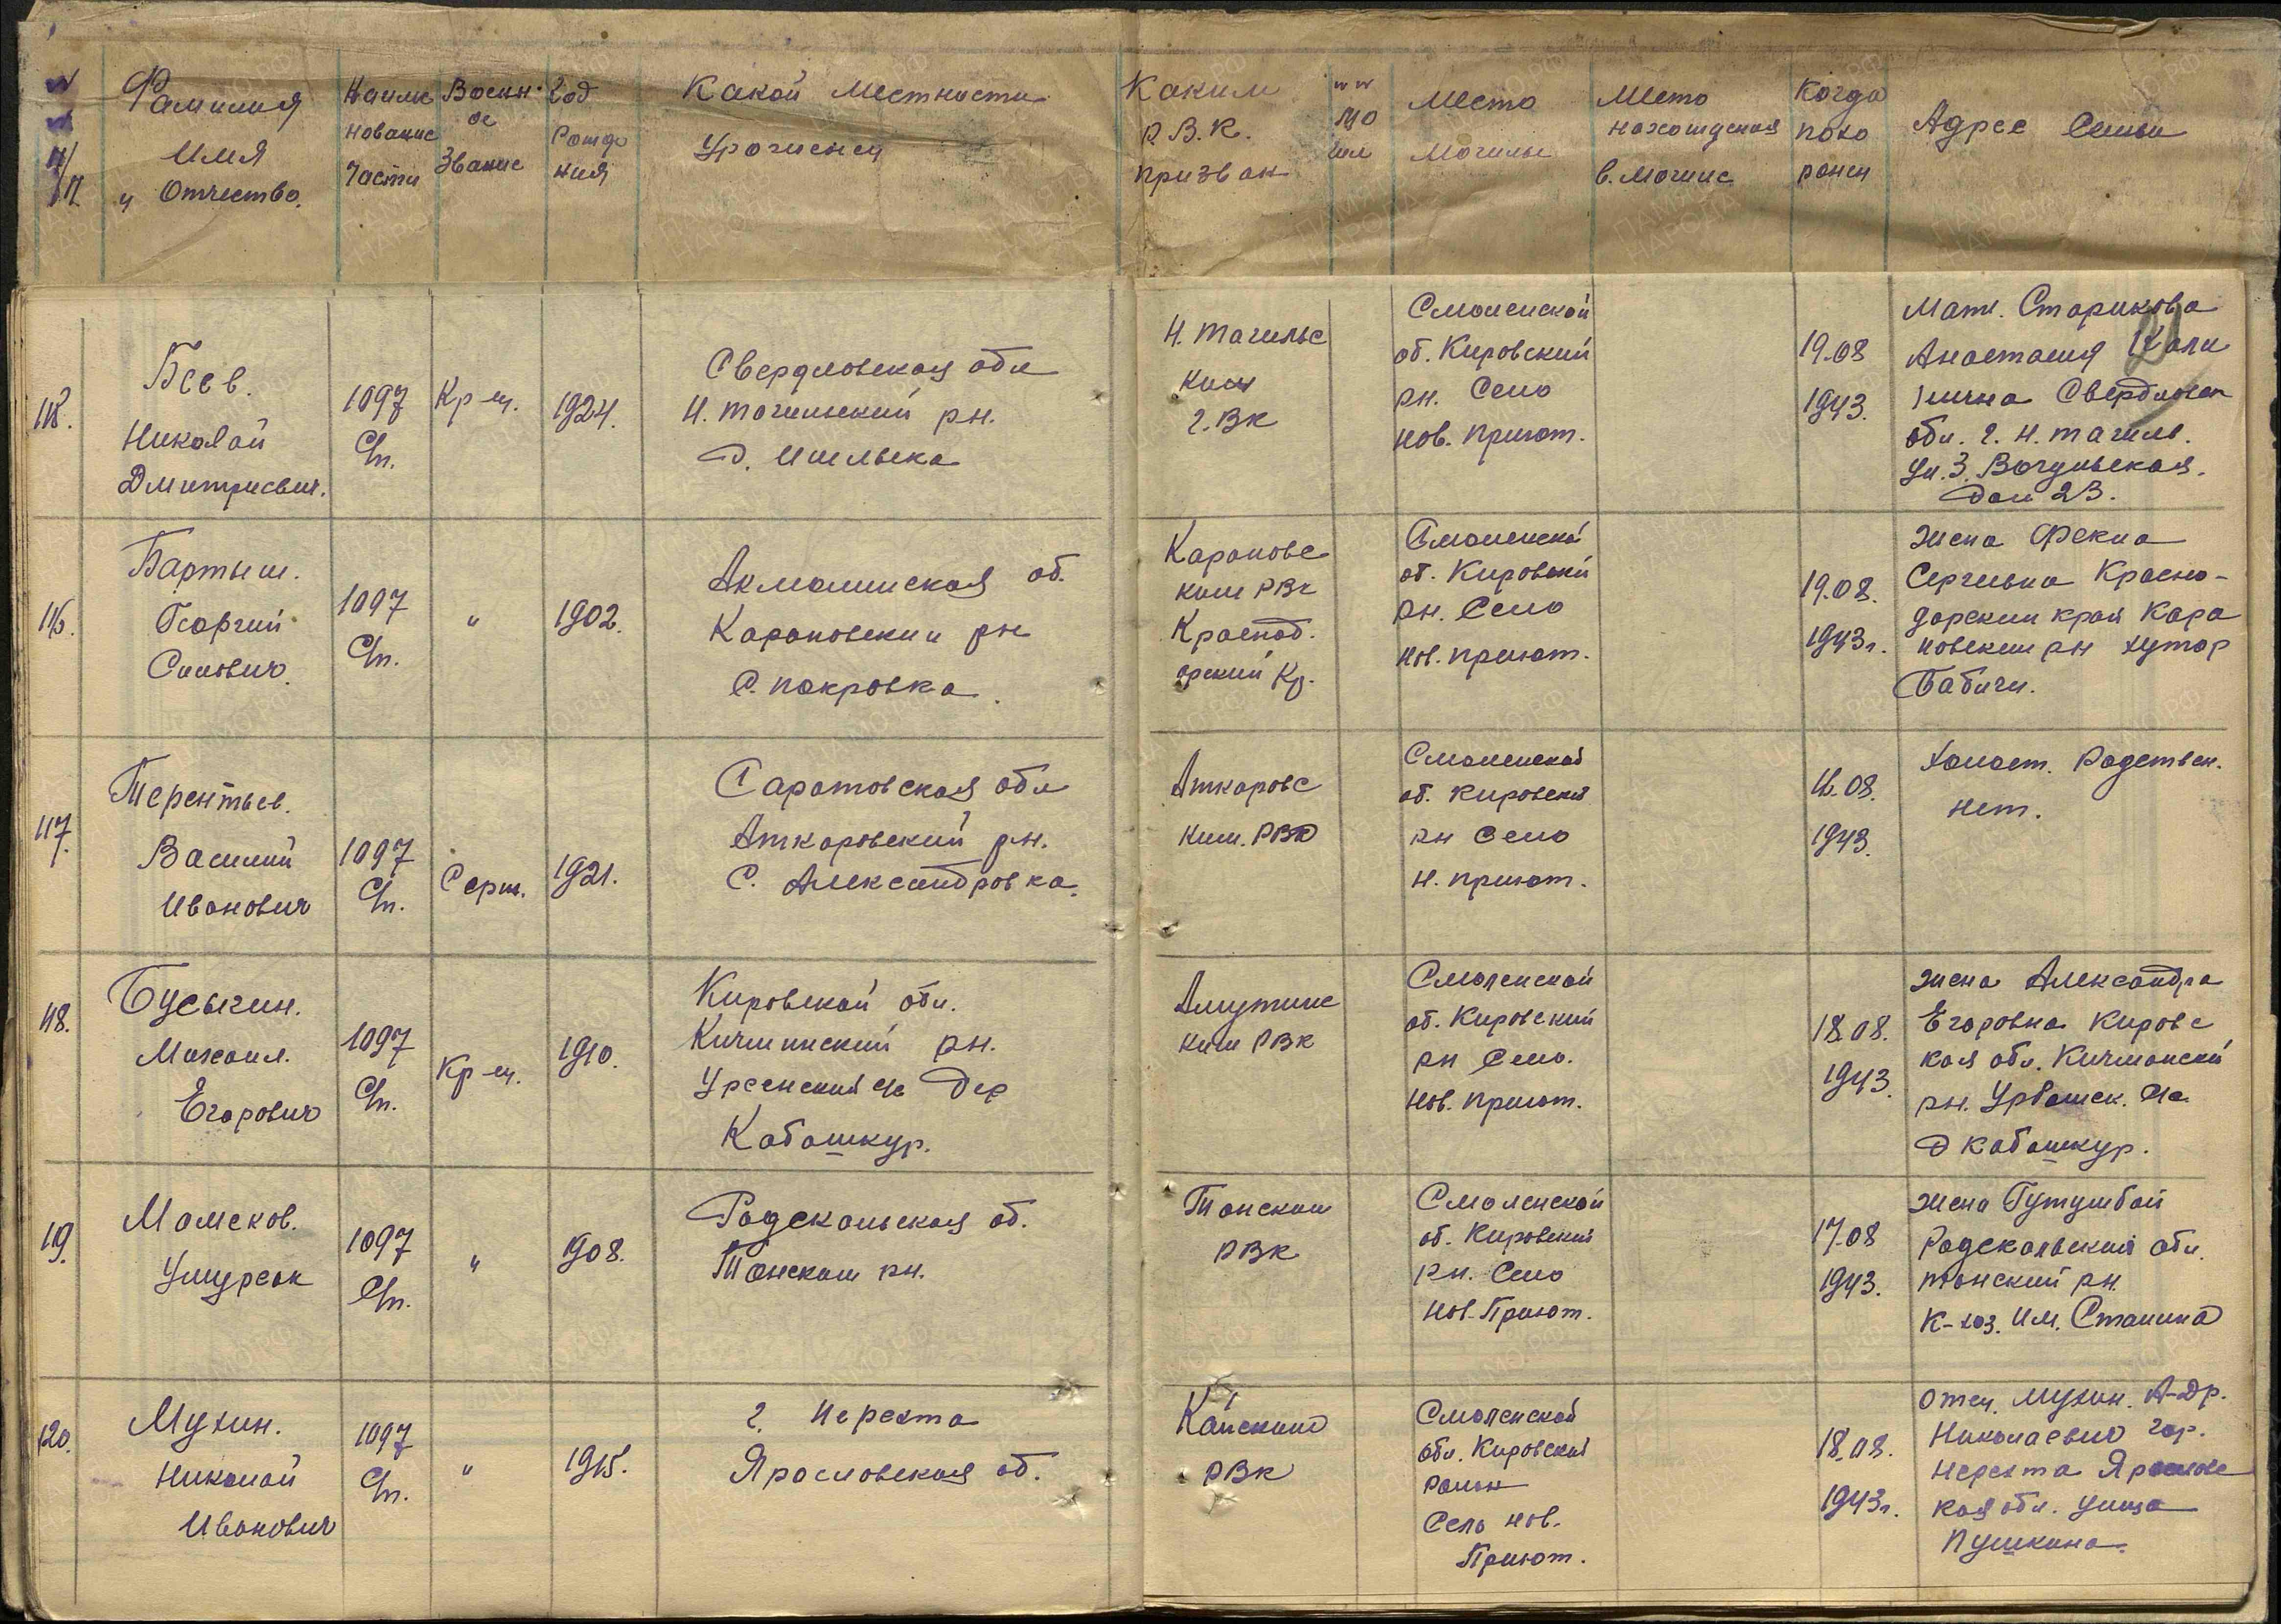 Фамилия
Имя
и Отчество.
Наиме
нование
Части
Воен-
ое
Звание
Год
Рожде
ния
Какой местности
Уроженец
Каким
Р.В.К.
призван
Место
Могилы
Место
нахождения
в могиле
Когда
похо
ронен
Адрес Семьи
Николай
Дмитриевич.
1097
Сп.
Кр-ец.
1924.
Свердловская обл
Н. тагильский рн.
Н. Тагильс
ким
г. Вк
Смоленской
об. Кировский
рн. Село
нов. Приют.
19.08
1943.
Мать. Старикова
Анастасия
обл. г. Н. тагиль.
Дом 23.
116.
Бартыш.
Георгий
1097
Сп.
"
1902.
Акмолинская об.
Карановский рн
С. Покровка
Карановс
ким РВк
Краснод.
арский Кр.
Смоленской
об. Кировский
рн. Село
нов. Приют.
19.08.
1943г.
жена Фекла
Сергеевна Красно-
дарский край Кара
новский рн хутор
Бабичи.
117.
Терентьев.
Василий
Иванович
1097
Сп.
Серж.
1921.
Саратовская обл
Аткарский рн.
С. Александровка.
Аткарс
ким. РВК
Смоленской
об. Кировский
рн Село
Н. Приют.
16.08.
1943.
Холост. Родствен.
нет.
118.
Бусыгин.
Михаил.
Егорович
1097
Сп.
Кр-ец.
1910.
Кировской обл.
Кичминский рн.
дер
Кабашкур.
ким РВк
Смоленской
об. Кировский
рн Село.
Нов. Приют.
18.08.
1943.
жена Александра
Егоровна Кировс
кая обл. Кичманский
Д Кабашкур.
119.
Мамеков.
1097
Сп.
"
1908.
об.
Тонским рн.
Тонским
РВк
Смоленской
об. Кировский
рн. Село
Нов. Приют.
17.08
1943.
жена
обл.
тонский рн.
К-хоз. Им. Сталина
120.
Мухин.
Николай
Иванович
1097
Сп.
"
1915.
г. Нерехта
Ярославская об.
Кайским
РВк
Смоленской
обл. Кировский
район
Село Нов.
Приют.
18.08.
1943г.
Отец. Мухин. А-др.
Николаевич гор.
Нерехта Ярославс
кая обл. улица
Пушкина.